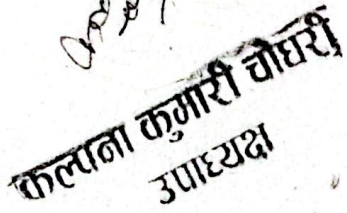 कल्पना कुमारी चौधरी
उपाध्यक्ष